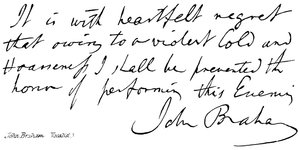 It is with heartfelt regret
that owing to a violent Cold and
Hoarseness I shall be prevented the
honor of performing this Evening
John Braham
John Braham